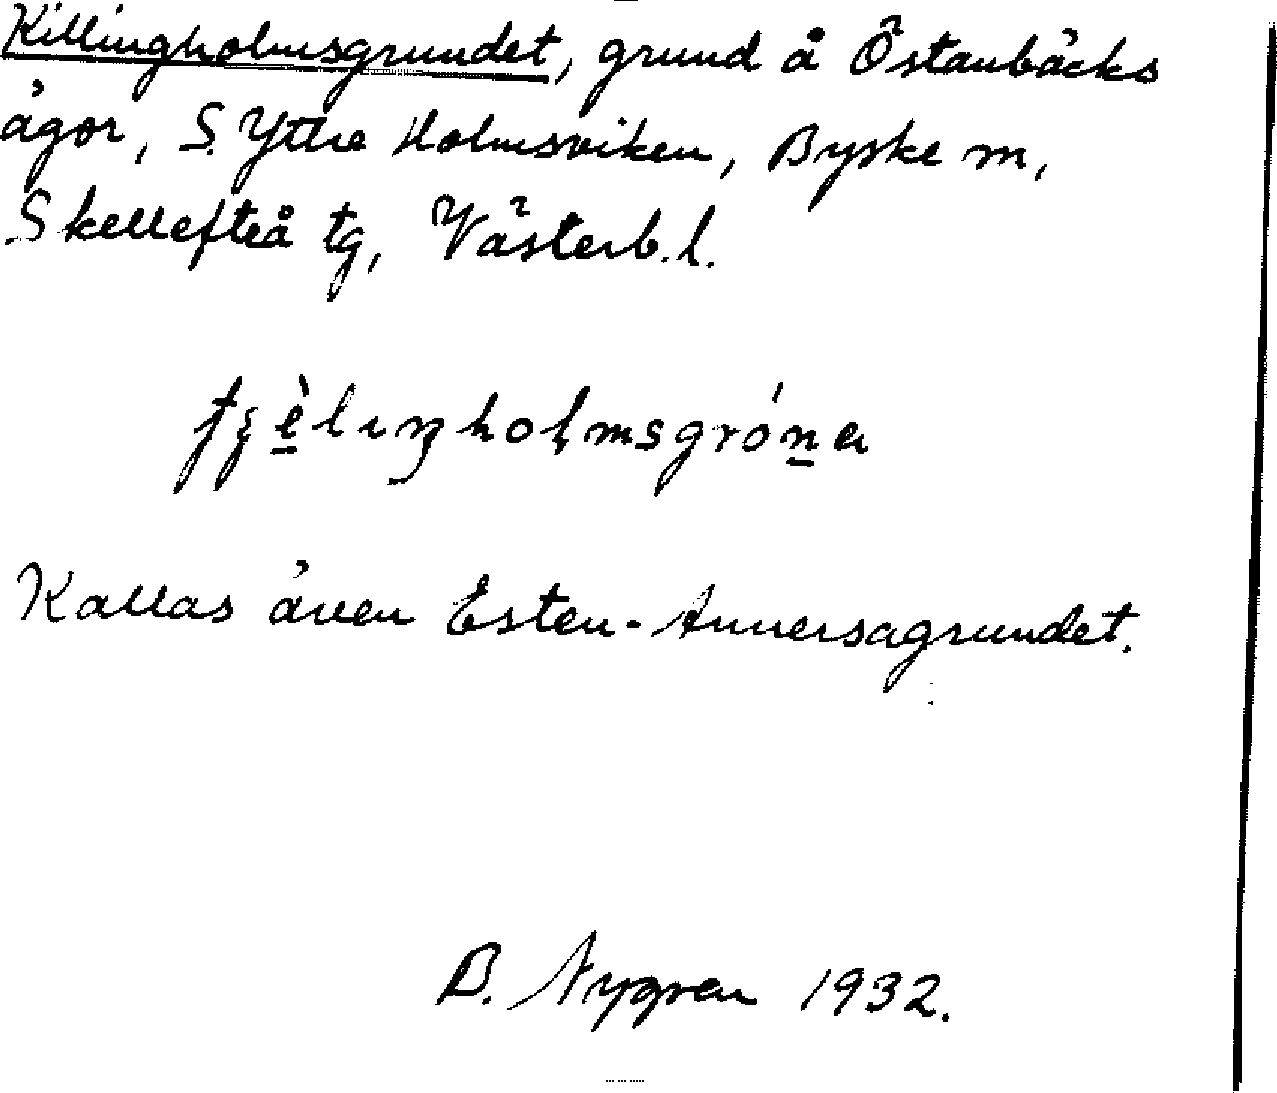 Killingholmsgrundet, grund å Östanbäcks
ägor, S. Yttre Holmsviken, Byske sn,
Skellefteå tg, Västerb. l.
Kallas även Esten-Annersagrundet.
B. Nygren 1932.